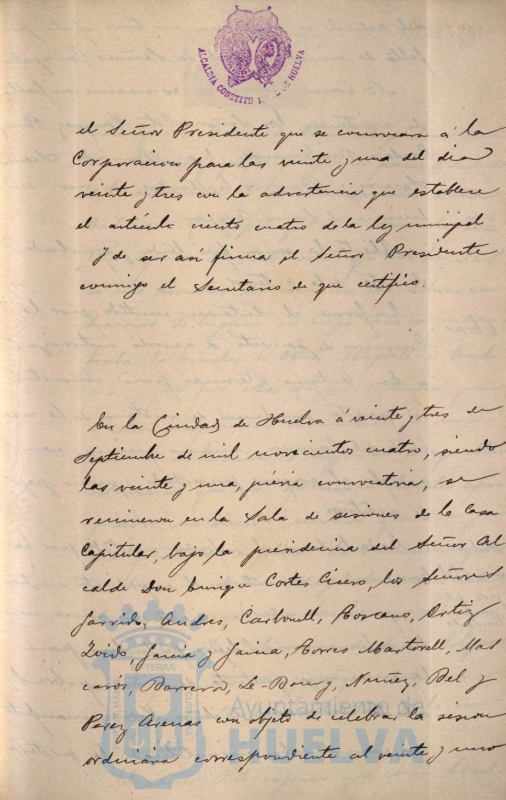 ALCALDIA CONSTITU DE HUELVA
el Señor Presidente que se convocara á la
Corporacion para las veinte y una del dia
veinte y tres con la advertencia que establece
el artículo ciento cuatro de la ley municipal
Y de ser asi firma el Señor Presidente
conmigo el Secretario de que certifico.
En la Ciudad de Huelva á veinte y tres de
Septiembre de mil novecientos cuatro, siendo
las veinte y una, prévia convocatoria, se
reunieron en la Sala de sesiones de la Casa
Capitular, bajo la presidencia del Señor Al
calde Don Enrique Cortes Cisero, los Señores
Garrido, Andres, Carbonell, Toscano, Ortiz
Garcia y Garcia, Torres Martorell, Mas
carós, Barrera, Le-Bourg, Nuñez, Bel y
Perez Arenas con objeto de celebrar la sesion
ordinaria correspondiente al veinte y uno
Ayuntamiento de
HUELVA